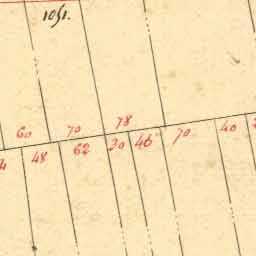 1051.
60 70 78
48 62 30 46 70 40